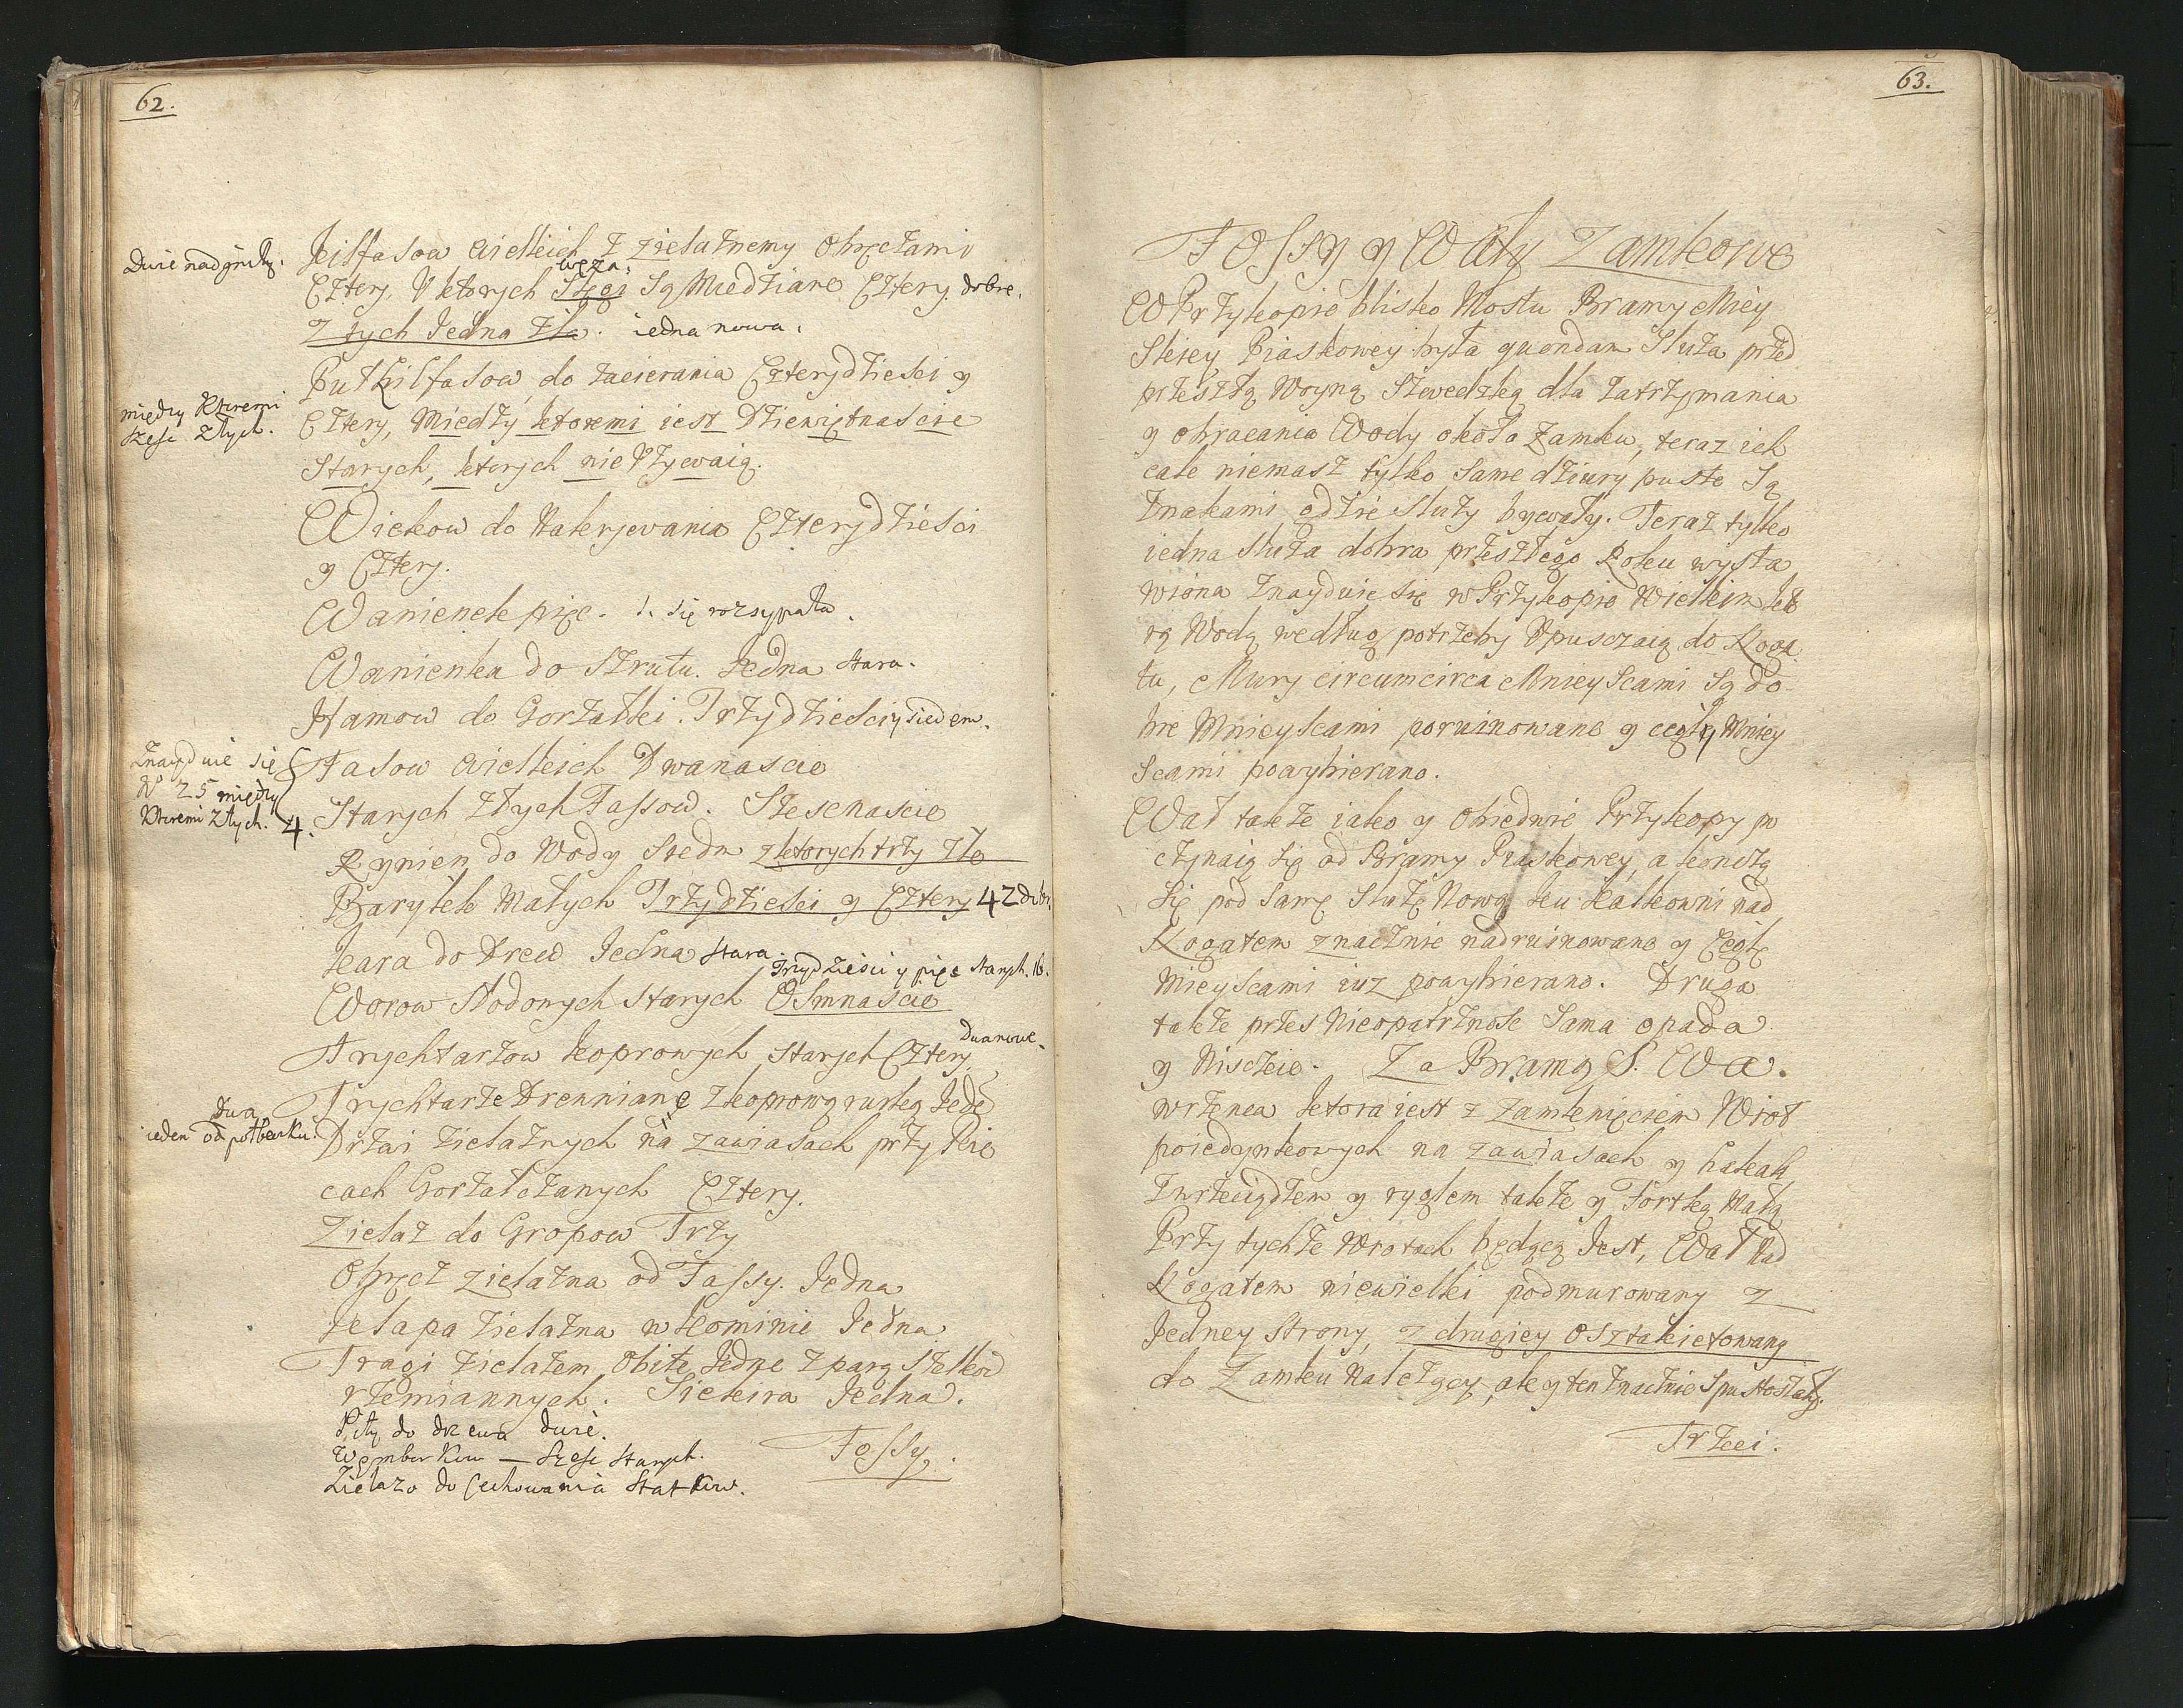 62.
Dwie nadgniły.
Kilfasow wielkich z zielaznemy obręczami
węza.
Cztery, V ktorych Szęgi Są Miedziane Cztery. dobre.
Z tych Jedna zła. iedna nowa.
Putkilfasow do zacierania Czterydziesci y
między ktoremi
szesc złych.
Cztery, Miedzy ktoremi iest Dziewiętnascie
Starych, ktorych nie Vzywaią.
Wiekow do Nakrywania Czterydziesci
y Cztery.
Wanienek pięc. 1. się rozsypała.
Wanienka do Szrutu. Jedna stara.
Hamow do Gorzałki. Trzydziesci y siedem.
Znayduie się
N 25 między
ktoremi złych. 4.
Fasow wielkich Dwanascie
Starych złych Fassow. Szesnascie
Rynien do Wody siedm z ktorych trzy złe
Baryłek Małych Trzydziesci y Cztery 42 dobr.
Kara do Drew Jedna stara
Trzydziesci y pięc starych. 16.
Worow Słodowych starych Osmnascie
dwa nowe.
Trychtarzow koprowych starych Cztery.
Trychtarze Drewniane z koprową rurką Jede
dwa
ieden od połbeczku.
Drzwi zielaznych na zawiasach przy Pie
cach Gorzałczanych Cztery.
Zielaz do Gropow Trzy
Obręcz zielazna od Fassy. Jedna
Klapa zielazna w Kominie Jedna
Tragi zielazem obite Jedne z parą Szelkow
rzemiannych. Siekira Jedna.
Piły do drzewa dwie.
Węmborkow — Szesc starych.
Zielazo do Cechowania Statkow.
Fossy.
63.
Fossy y Wały Zamkowe
W Przykopie blisko Mostu Bramy Miey
skiey Piaskowey była quondam Sluza przed
przeszłą Woyną Szwedzką dla zatrzymania
y obracania Wody około Zamku, teraz ich
cale niemasz tylko same dziury puste Są
znakami gdzie Sluzy bywały. Teraz tylko
iedna Sluza dobra przeszłego Roku wysta
wiona znayduie się w Przykopie Wielkim kto
rą Wodą według potrzeby Vpusczaią do Noga
tu, Mury circumcirca Mnieyscami Są do
bre Mnieyscami poruinowane y cegły Mniey
scami powybierano.
Wał takze iako y Obiedwie Przykopy po
czynaią się od Bramy Piaskowey, a konczą
się pod samę Sluzę Nową ku Kalkowni nad
Nogatem znacznie nadruinowane y Cegłę
Mieyscami iuz powybierano. Druga
takze przes Nieopatrznosc Sama opada
y Nisczeie. Za Bramą S. Wa.
wrzenca ktora iest z zamknięciem Wrot
poiedynkowych na zawiasach y hakach
z wrzeciądzem y ryglem takze y Fortką Małą
Przy tychze Wrotach będącą Jest, Wał Nad
Nogatem niewielki podmurowany z
Jedney Strony, z drugiey Osztakietowany
do Zamku Nalezący, ale y ten znacznie Spustoszały.
Trzeci.